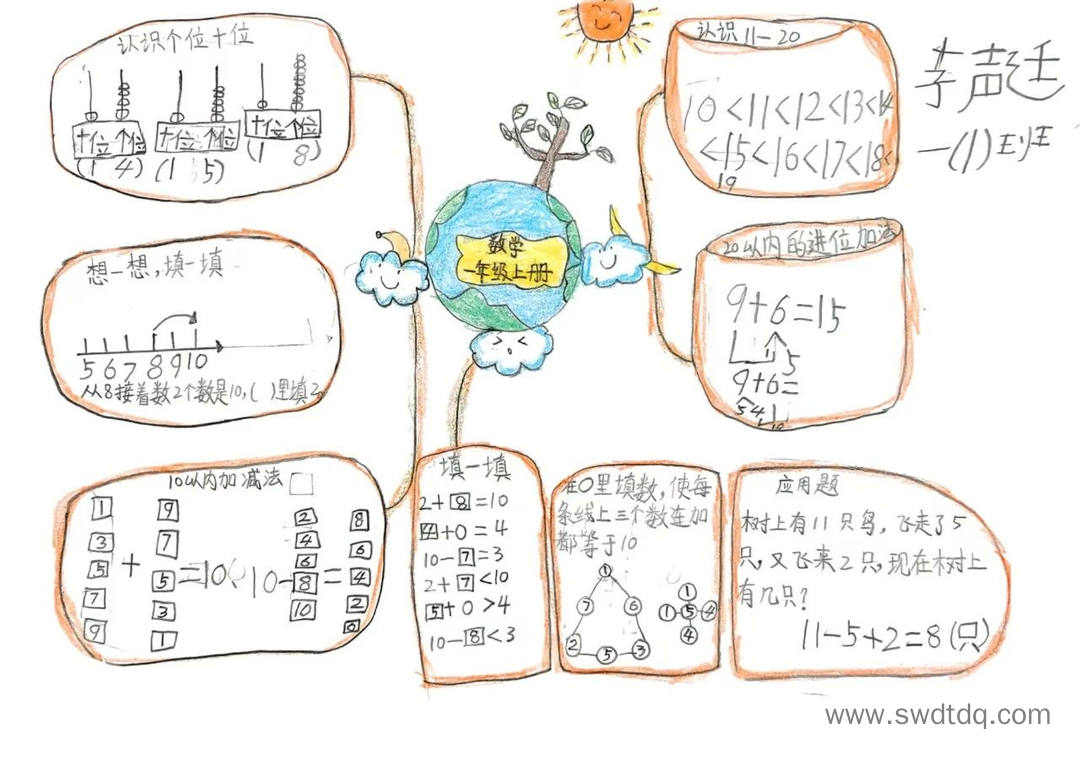 认识个位十位
十位个位 十位个位 十位个位
(1 4) (1 5) (1 8)
想一想,填一填
5 6 7 8 9 10
从8接着数2个数是10,( )里填2
10以内加减法
1 9 2 8
3 7 4 6
5 + 5 =10 10- 6 = 4
7 3 8 2
9 1 10 0
数学
一年级上册
填一填
2+8=10
4+0=4
10-7=3
2+7<10
5+0>4
10-8<3
在○里填数,使每
条线上三个数连加
都等于10
1
7 6
2 5 3
1
1 5 4
4
应用题
树上有11只鸟,飞走了5
只,又飞来2只,现在树上
有几只?
11-5+2=8(只)
认识11-20
10<11<12<13<14
<15<16<17<18<
19
20以内的进位加法
9+6=15
1 5
9+6=
5 4 1
10
一(1)班
www.swdtdq.com